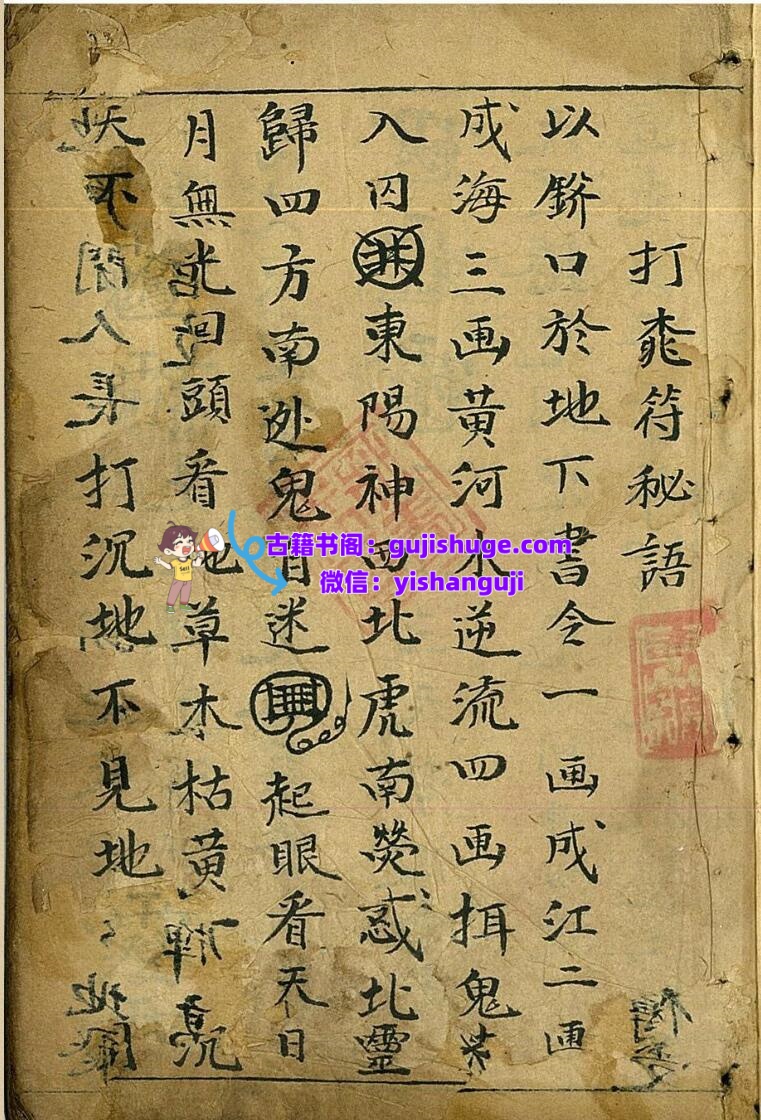 打 符秘語
以 口於地下書令一画成江二画
成海三画黄河水逆流四画 鬼
入囚 井 東陽神西北虎南熒惑北靈
歸四方南 鬼自迷 起眼看天日
月無光回頭看地草木枯黄 沉
天不開人 打沉地不見地
古籍书阁：gujishuge.com
微信：yishanguji